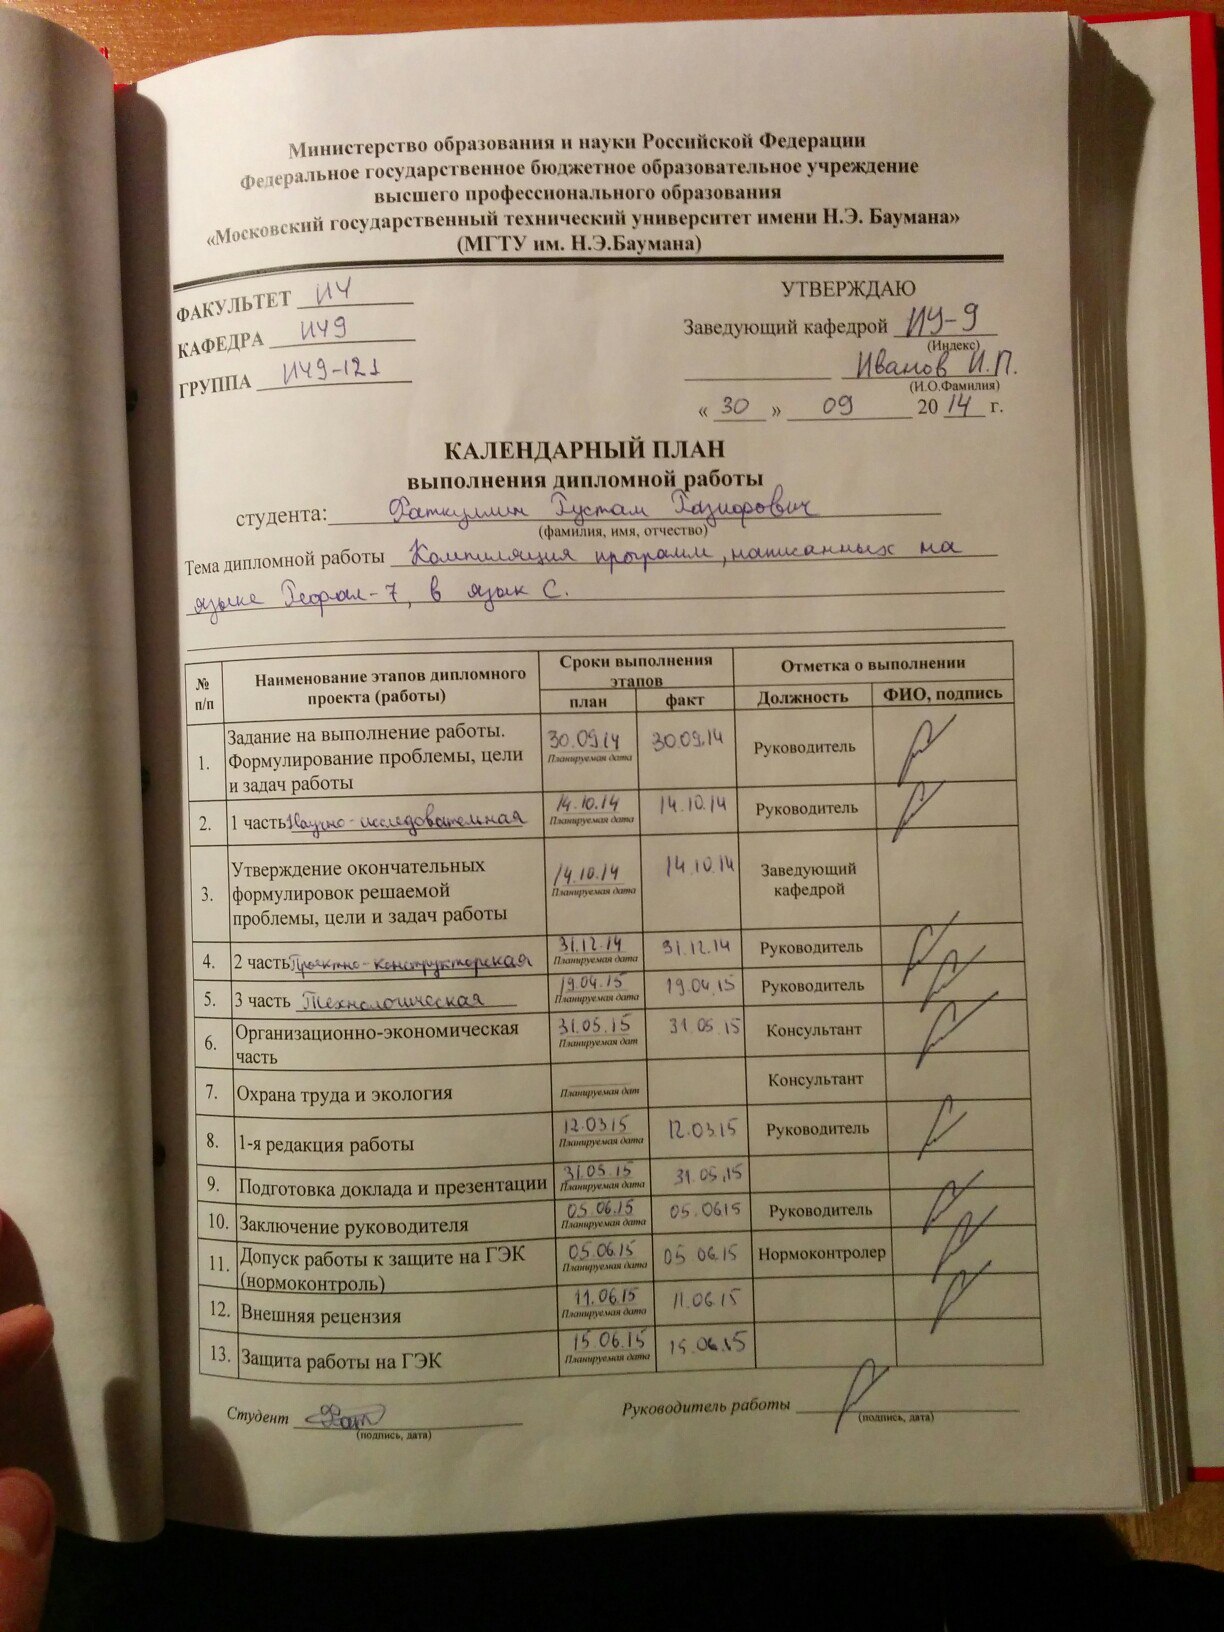 Министерство образования и науки Российской Федерации
Федеральное государственное бюджетное образовательное учреждение
высшего профессионального образования
«Московский государственный технический университет имени Н.Э. Баумана»
(МГТУ им. Н.Э.Баумана)
ФАКУЛЬТЕТ ИУ
КАФЕДРА ИУ9
ГРУППА ИУ9-121
УТВЕРЖДАЮ
Заведующий кафедрой ИУ-9
(Индекс)
Иванов И.П.
(И.О.Фамилия)
« 30 » 09 20 14 г.
КАЛЕНДАРНЫЙ ПЛАН
выполнения дипломной работы
студента: Раткуллин Рустам
(фамилия, имя, отчество)
Тема дипломной работы Компиляция программ, написанных на
языке Рефал-7, в язык С.
№ п/п Наименование этапов дипломного проекта (работы) Сроки выполнения этапов Отметка о выполнении
план факт Должность ФИО, подпись
1. Задание на выполнение работы. Формулирование проблемы, цели и задач работы 30.09.14 Планируемая дата 30.09.14 Руководитель
2. 1 часть Научно-исследовательная 14.10.14 Планируемая дата 14.10.14 Руководитель
3. Утверждение окончательных формулировок решаемой проблемы, цели и задач работы 14.10.14 Планируемая дата 14.10.14 Заведующий кафедрой
4. 2 часть Проектно-конструкторская 31.12.14 Планируемая дата 31.12.14 Руководитель
5. 3 часть Технологическая 19.04.15 Планируемая дата 19.04.15 Руководитель
6. Организационно-экономическая часть 31.05.15 Планируемая дат 31.05.15 Консультант
7. Охрана труда и экология Планируемая дат Консультант
8. 1-я редакция работы 12.03.15 Планируемая дата 12.03.15 Руководитель
9. Подготовка доклада и презентации 31.05.15 Планируемая дата 31.05.15
10. Заключение руководителя 05.06.15 Планируемая дата 05.06.15 Руководитель
11. Допуск работы к защите на ГЭК (нормоконтроль) 05.06.15 Планируемая дата 05.06.15 Нормоконтролер
12. Внешняя рецензия 11.06.15 Планируемая дата 11.06.15
13. Защита работы на ГЭК 15.06.15 Планируемая дата 15.06.15
Студент
(подпись, дата)
Руководитель работы
(подпись, дата)